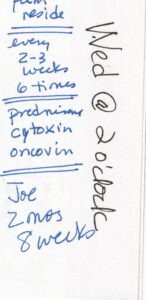 reside
every
2-3
weeks
6 times
prednisone
cytoxin
oncovin
Joe
2 mos
8 weeks
Wed @ 2 o'clock